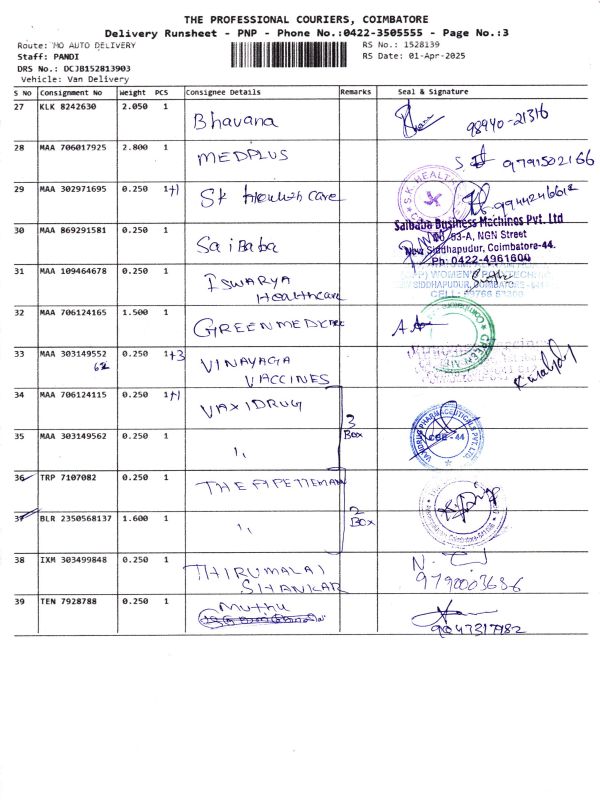 THE PROFESSIONAL COURIERS, COIMBATORE
Delivery Runsheet - PNP - Phone No.:0422-3505555 - Page No.:3
Route: MO AUTO DELIVERY RS No.: 1528139
Staff: PANDI RS Date: 01-Apr-2025
DRS No.: DCJB152813903
Vehicle: Van Delivery
S No Consignment No Weight PCS Consignee Details Remarks Seal & Signature
27 KLK 8242630 2.050 1 Bhavana 98940-21316
28 MAA 706017925 2.800 1 MEDPLUS 9791502166
29 MAA 302971695 0.250 1+1 SK Health care
30 MAA 869291581 0.250 1 Sai Baba
Saibaba Business Machines Pvt. Ltd
83-A, NGN Street
New Siddhapudur, Coimbatore-44.
Ph: 0422-4961600
31 MAA 109464678 0.250 1 ISWARYA
Healthcare
32 MAA 706124165 1.500 1 GREENMEDICARE
33 MAA 303149552 0.250 1+3 VINAYAGA
62 VACCINES
34 MAA 706124115 0.250 1+1 VAXIDRUG
3
Box
35 MAA 303149562 0.250 1 ''
CBE - 44
36 TRP 7107082 0.250 1 THE PIPETTEMAN
2
Box
37 BLR 2350568137 1.600 1 ''
38 IXM 303499848 0.250 1 THIRUMALAI
SHANKAR
9790003686
39 TEN 7928788 0.250 1 Muthu
9047317982